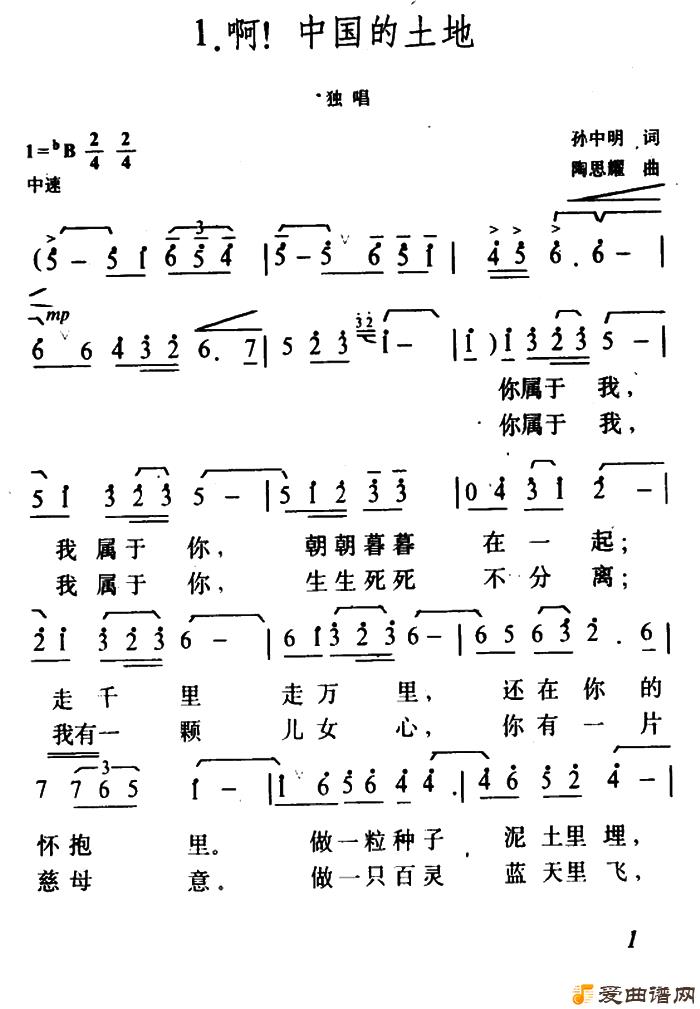 1.啊! 中国的土地
独 唱
1=♭B 2/4 2/4
孙中明 词
中速
陶思耀 曲
(5 - 5 1 6 5 4 | 5 - 5 6 5 1 | 4 5 6 . 6 - |
mp
6 6 4 3 2 6 . 7 | 5 2 3 3 2 1 - | 1 ) 1 3 2 3 5 - |
你属于 我,
你属于 我,
5 1 3 2 3 5 - | 5 1 2 3 3 | 0 4 3 1 2 - |
我 属 于 你, 朝朝暮暮 在 一 起;
我 属 于 你, 生生死死 不 分 离;
2 1 3 2 3 6 - | 6 1 3 2 3 6 - | 6 5 6 3 2 . 6 |
走 千 里 走 万 里, 还 在 你 的
我有一 颗 儿 女 心, 你 有 一 片
7 7 6 5 1 - | 1 6 5 6 4 4 . | 4 6 5 2 4 - |
怀 抱 里。 做一粒种子 泥 土 里 埋,
慈 母 意。 做一只百灵 蓝 天 里 飞,
1
爱曲谱网